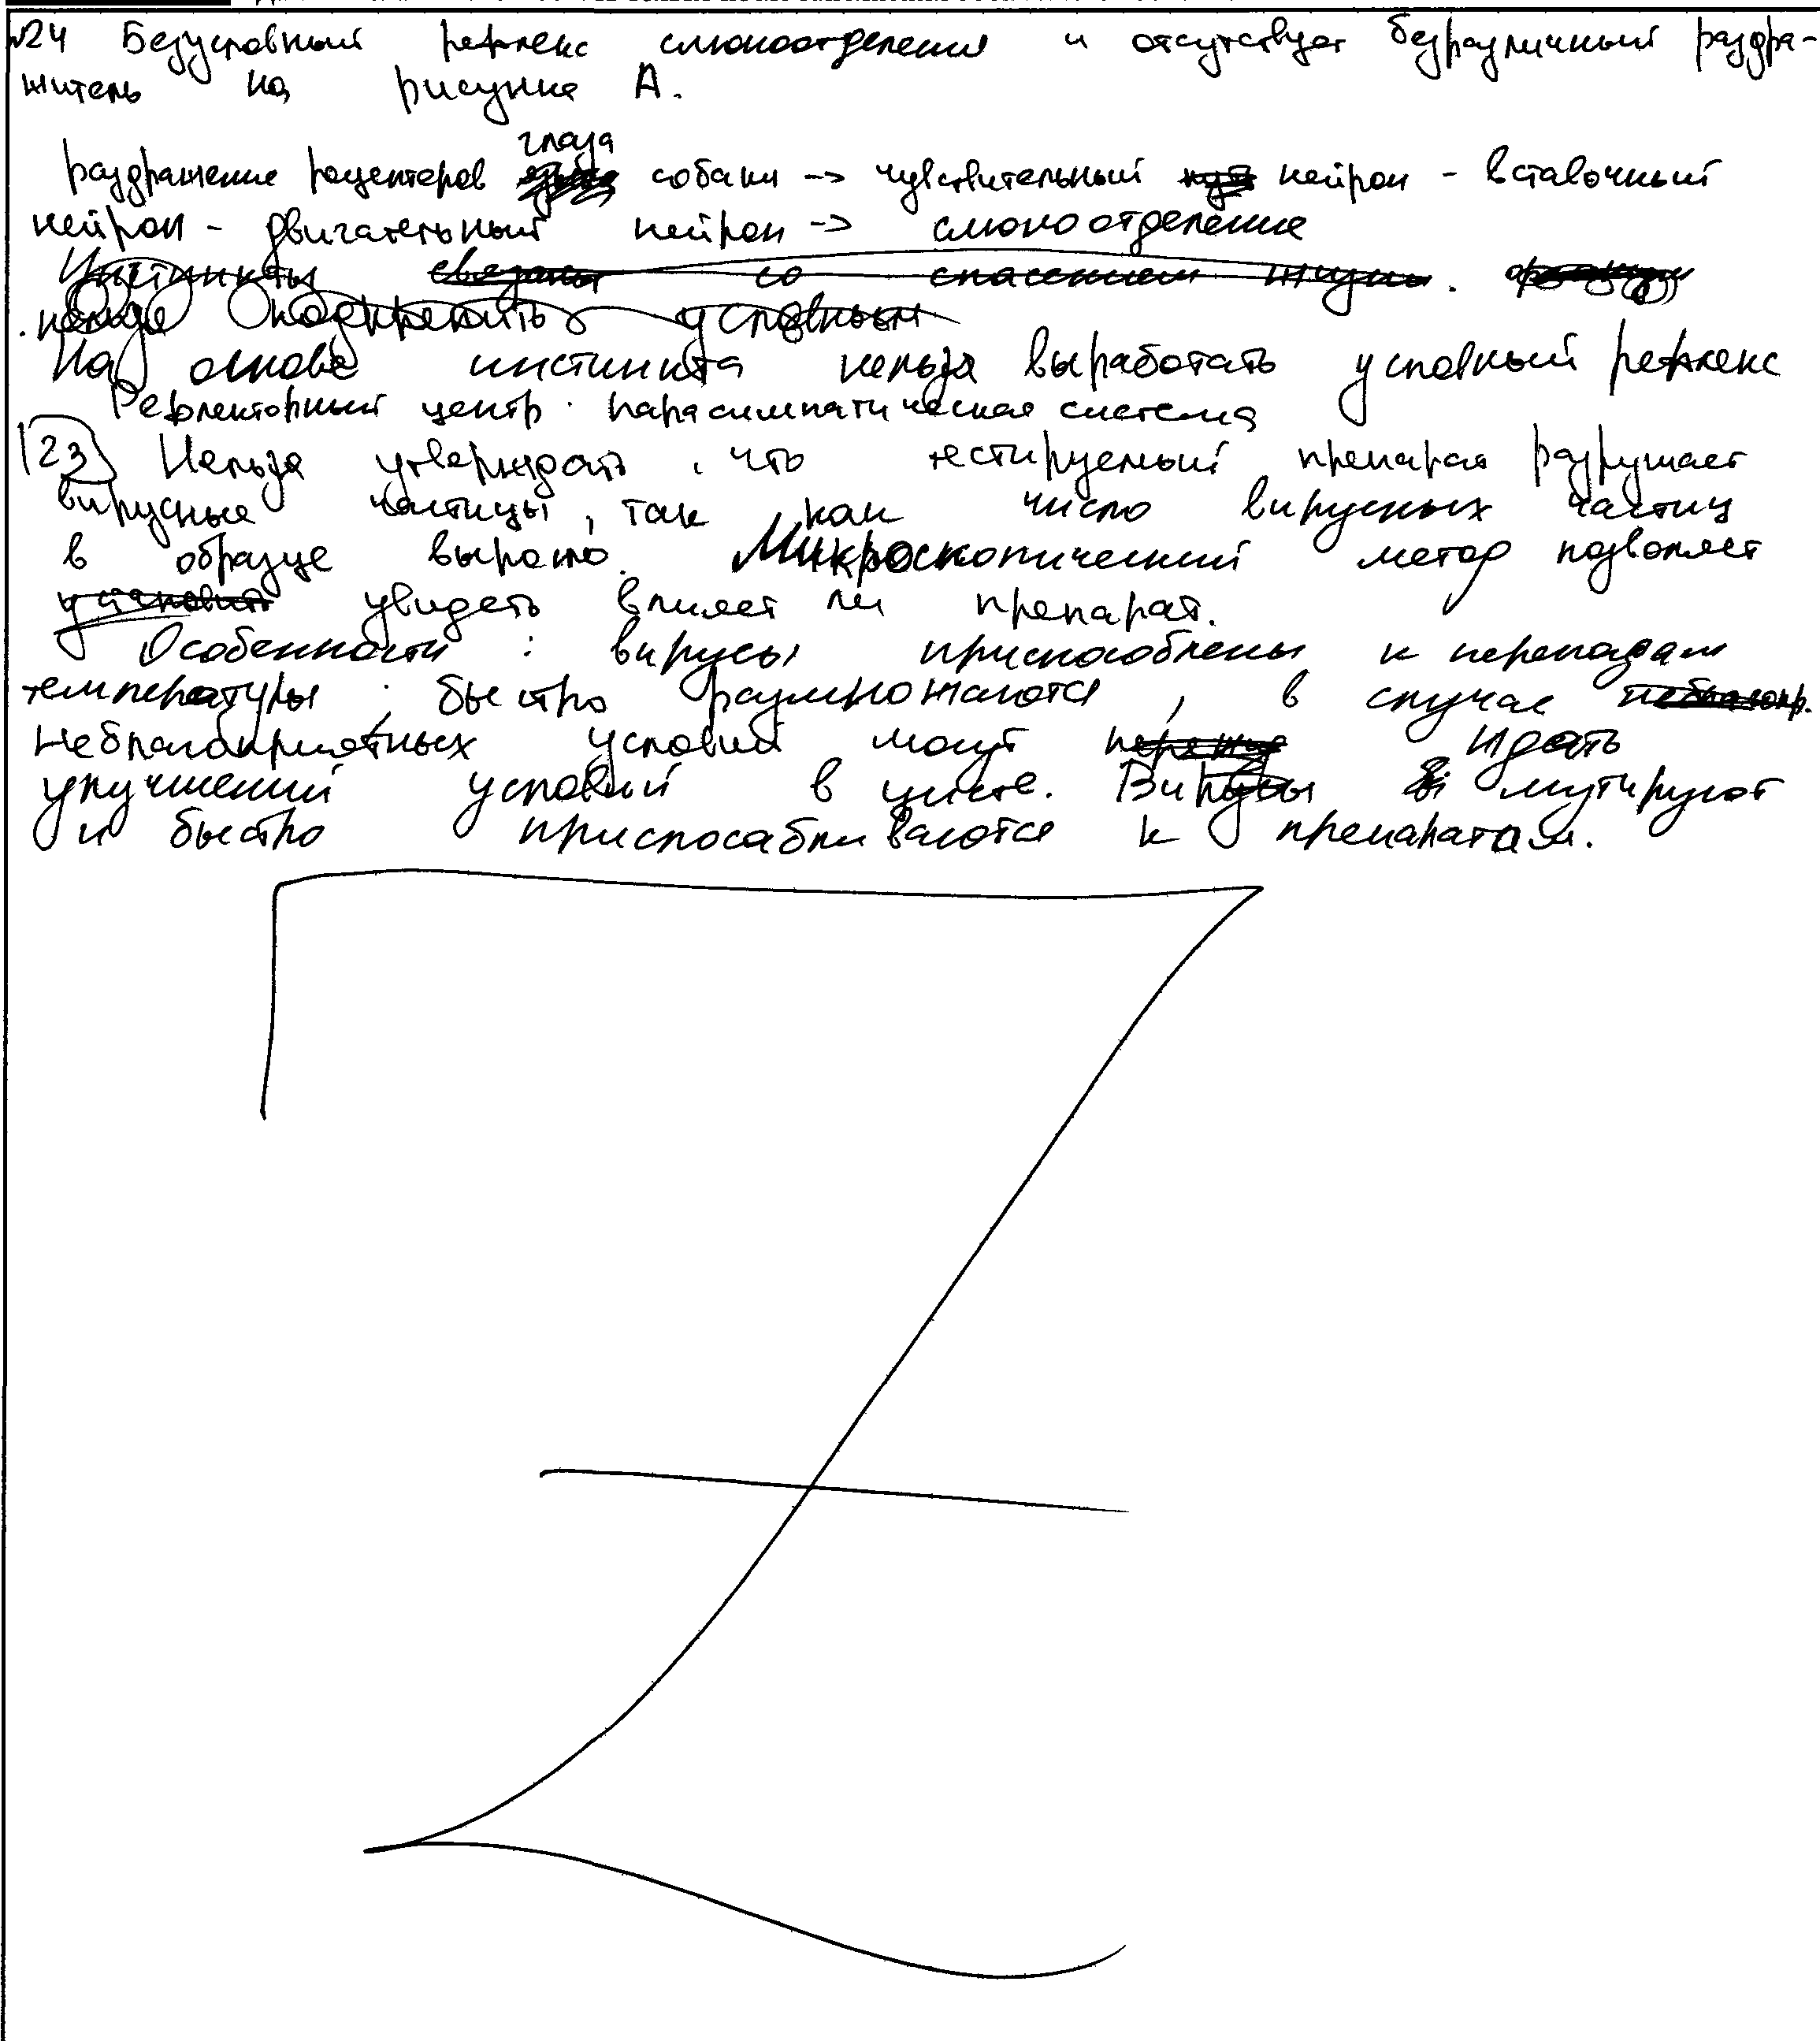 №24 Безусловный рефлекс слюноотделения и отсутствует безразличный раздра-
житель на рисунке А.
глаза
раздражение рецепторов собаки -> чувствительный нейрон - вставочный
нейрон - двигательный нейрон -> слюноотделение
Инстинкты связаны со спасением жизни.
нельзя подкрепить условным
На основе инстинкта нельзя выработать условный рефлекс
Рефлекторный центр. парасимпатическая система
23) Нельзя утверждать, что тестируемый препарат разрушает
вирусные частицы, так как число вирусных частиц
в образце выросло. Микроскопический метод позволяет
установить увидеть влияет ли препарат.
Особенности: вирусы приспособлены к перепадам
температуры, быстро размножаются, в случае неблагопр.
неблагоприятных условий могут ждать
улучшений условий в цисте. Вирусы мутируют
и быстро приспосабливаются к препаратам.